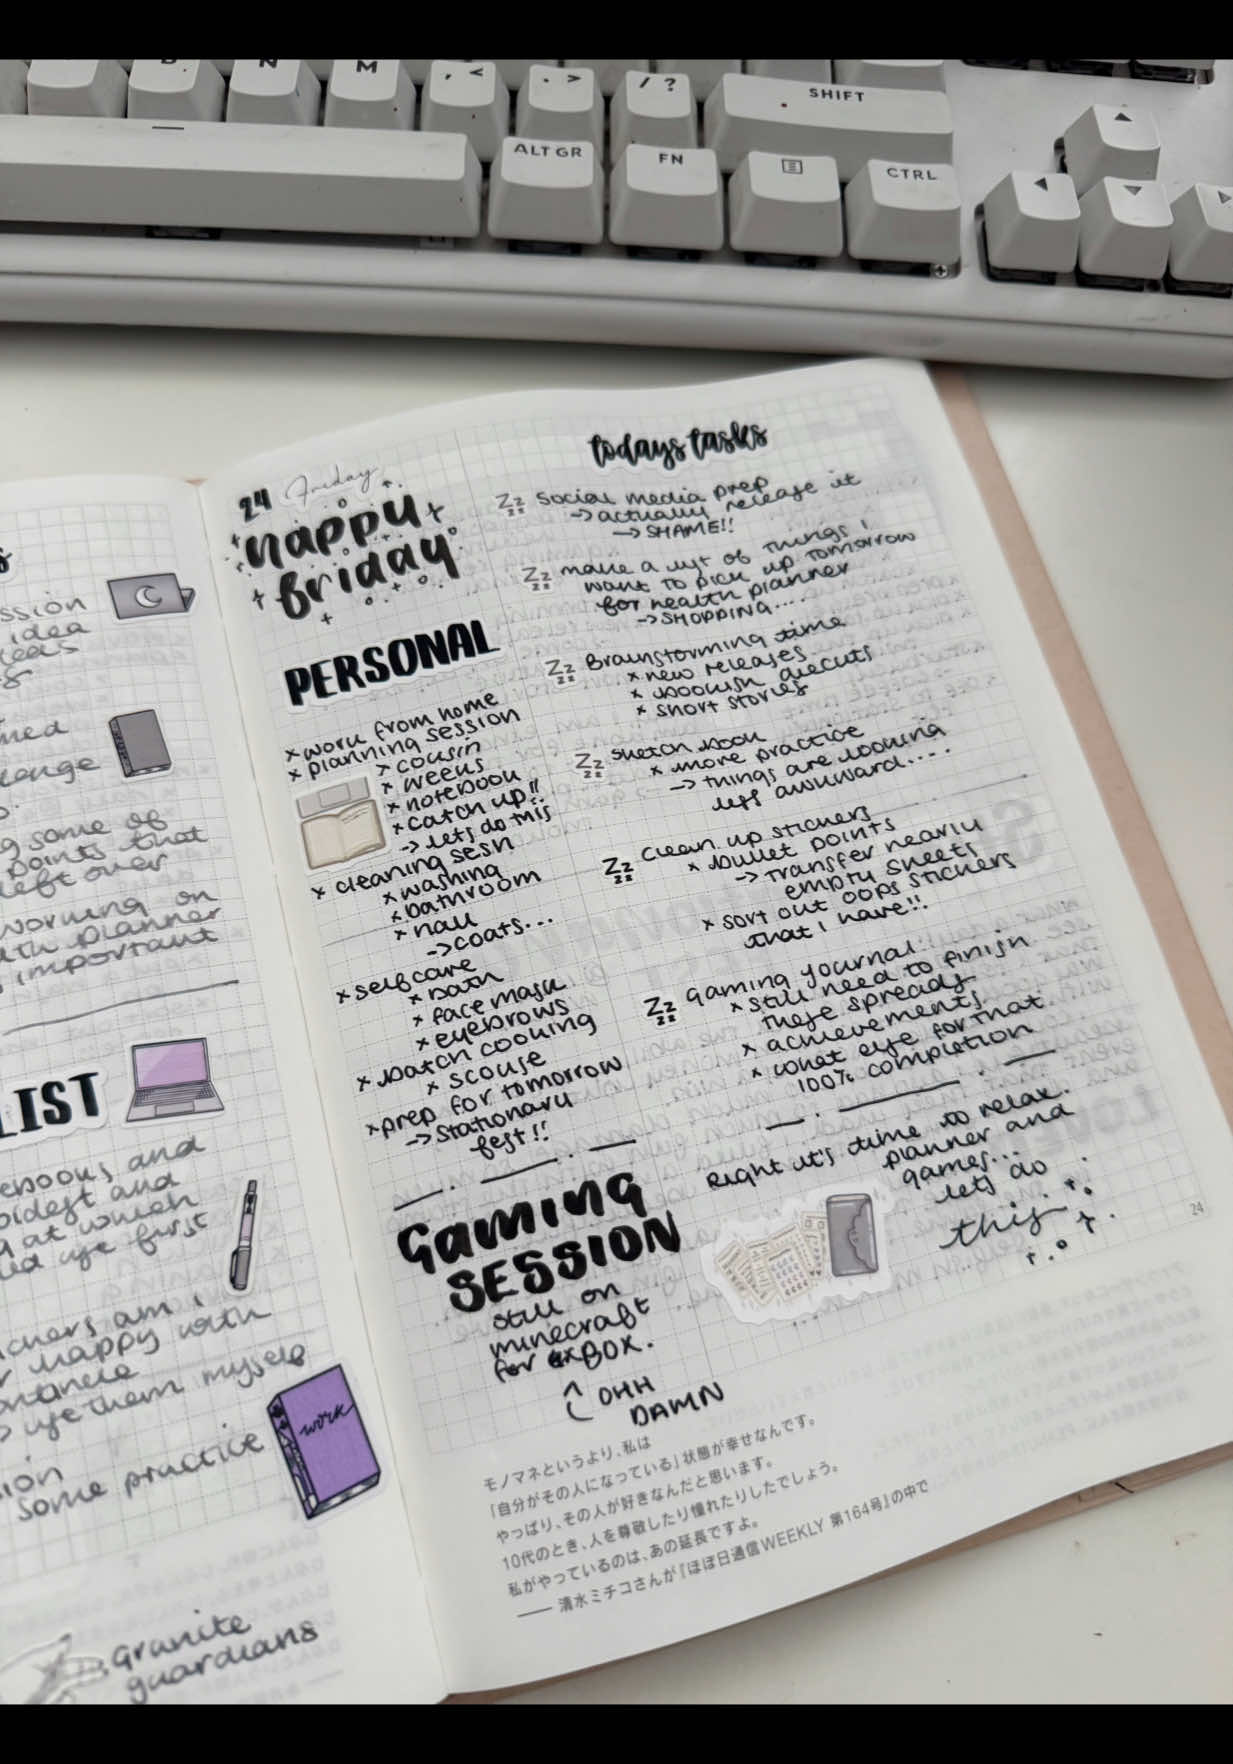 B
N
M
, <
. >
/ ?
SHIFT
ALT GR
FN
CTRL
ssion
idea
med
lenge
g some of
points that
left over
working on
lth planner
important
LIST
ebooks and
oldest and
g at which
use first
ickers am i
happy with
use them myself
some practice
work
granite
guardians
24 Friday
happy
friday
PERSONAL
x work from home
x planning session
> cousin
x weeks
x notebook
x catch up!!
→ lets do this
x cleaning sesh
x washing
x bathroom
x hall
→ coats...
x selfcare
x bath
x face mask
x eyebrows
x batch cooking
x scouse
x prep for tomorrow
→ stationary
fest!!
GAMING
SESSION
still on
minecraft
for xBOX.
OHH
DAMN
todays tasks
Zzzz social media prep
→ actually release it
→ SHAME!!
Zzzz make a list of things i
want to pick up tomorrow
for health planner
→ SHOPPING....
Zzzz Brainstorming time
x new releases
x bookish diecuts
x short stories
Zzzz sketch book
x more practice
→ things are looking
less awkward....
Zzzz clean up stickers
x bullet points
→ transfer nearly
empty sheets
x sort out oops stickers
that i have!!
Zzzz gaming journal
x still need to finish
these spreads
x achievements
x what else for that
100% completion
Right it's time to relax.
planner and
games...
lets do
this
24
モノマネというより、私は
「自分がその人になっている」状態が幸せなんです。
やっぱり、その人が好きなんだと思います。
10代のとき、人を尊敬したり憧れたりしたでしょう。
私がやっているのは、あの延長ですよ。
—— 清水ミチコさんが『ほぼ日通信WEEKLY 第164号』の中で